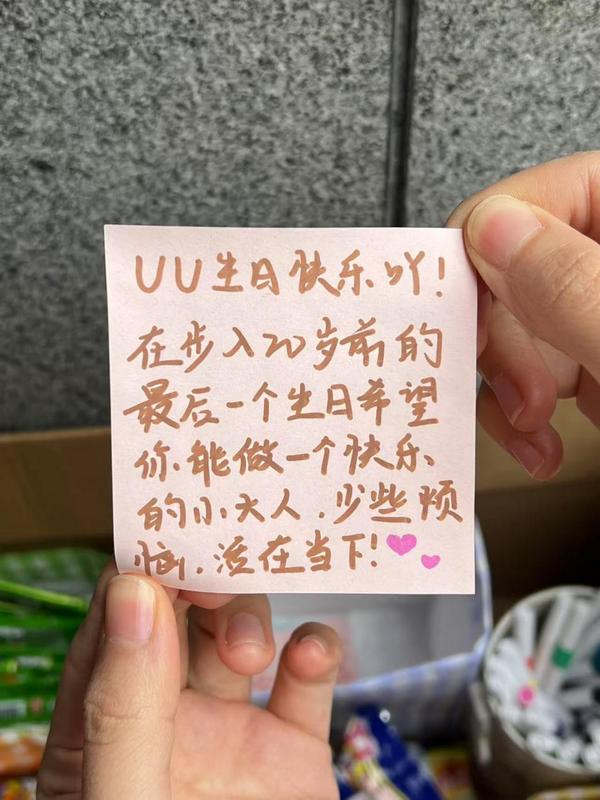 UU生日快乐吖！
在步入20岁前的
最后一个生日希望
你能做一个快乐
的小大人.少些烦
恼.活在当下！